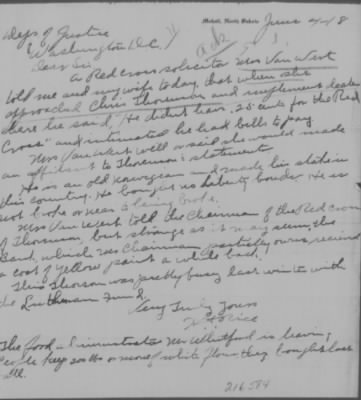 Mohall, North Dakota June 4/18
Deps of Justice
Washington D.C.
Dear Sir,
A Red Cross solicitor Mrs Van West
told me and my wife today, that when she
approached Chris Thoreson and implement dealer
here he said, He didn't have 25 cents for the Red
Cross" and intimated he had bills to pay
Mrs Van West well or said she would made
an affidavit to Thoreson's statement
He is an old norwegian and made his stake in
this country. He bought no liberty bonds. He is
not broke or near a being broke.
Mrs Van West told the Chairman of the Red cross
of Thoreson, but strange as it may seem, the
bank, which the Chairman partially owns, received
a coat of yellow paint a while back.
This Thoreson was pretty busy last winter with
the Lutheran Fund
Very Truly Yours
The food administrator Mr Whitford is leaving
people keep 200 lbs or more of white flour they bought last
fall.
216584